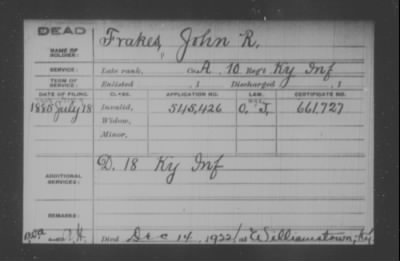 DEAD
NAME OF SOLDIER: Frakes, John R.
SERVICE: Late rank, Co. A, 10 Reg't Ky Inf
TERM OF SERVICE: Enlisted , 1 Discharged , 1
DATE OF FILING. CLASS. APPLICATION NO. LAW. CERTIFICATE NO.
1885 July 18 Invalid, 545,426 661,727
Widow,
Minor,
ADDITIONAL SERVICES: D. 18 Ky Inf
REMARKS:
Died Dec 14, 1922, at Williamstown, Ky.